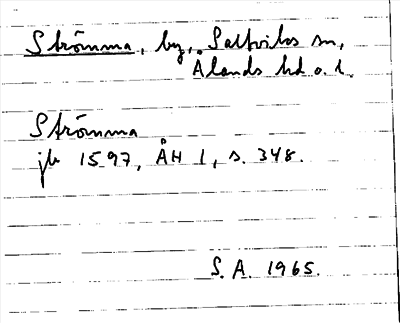 Strömma, by, Saltviks sn,
Ålands hd o. l.
Strömma
jb 1597, ÅH 1, s. 348.
S. A. 1965.